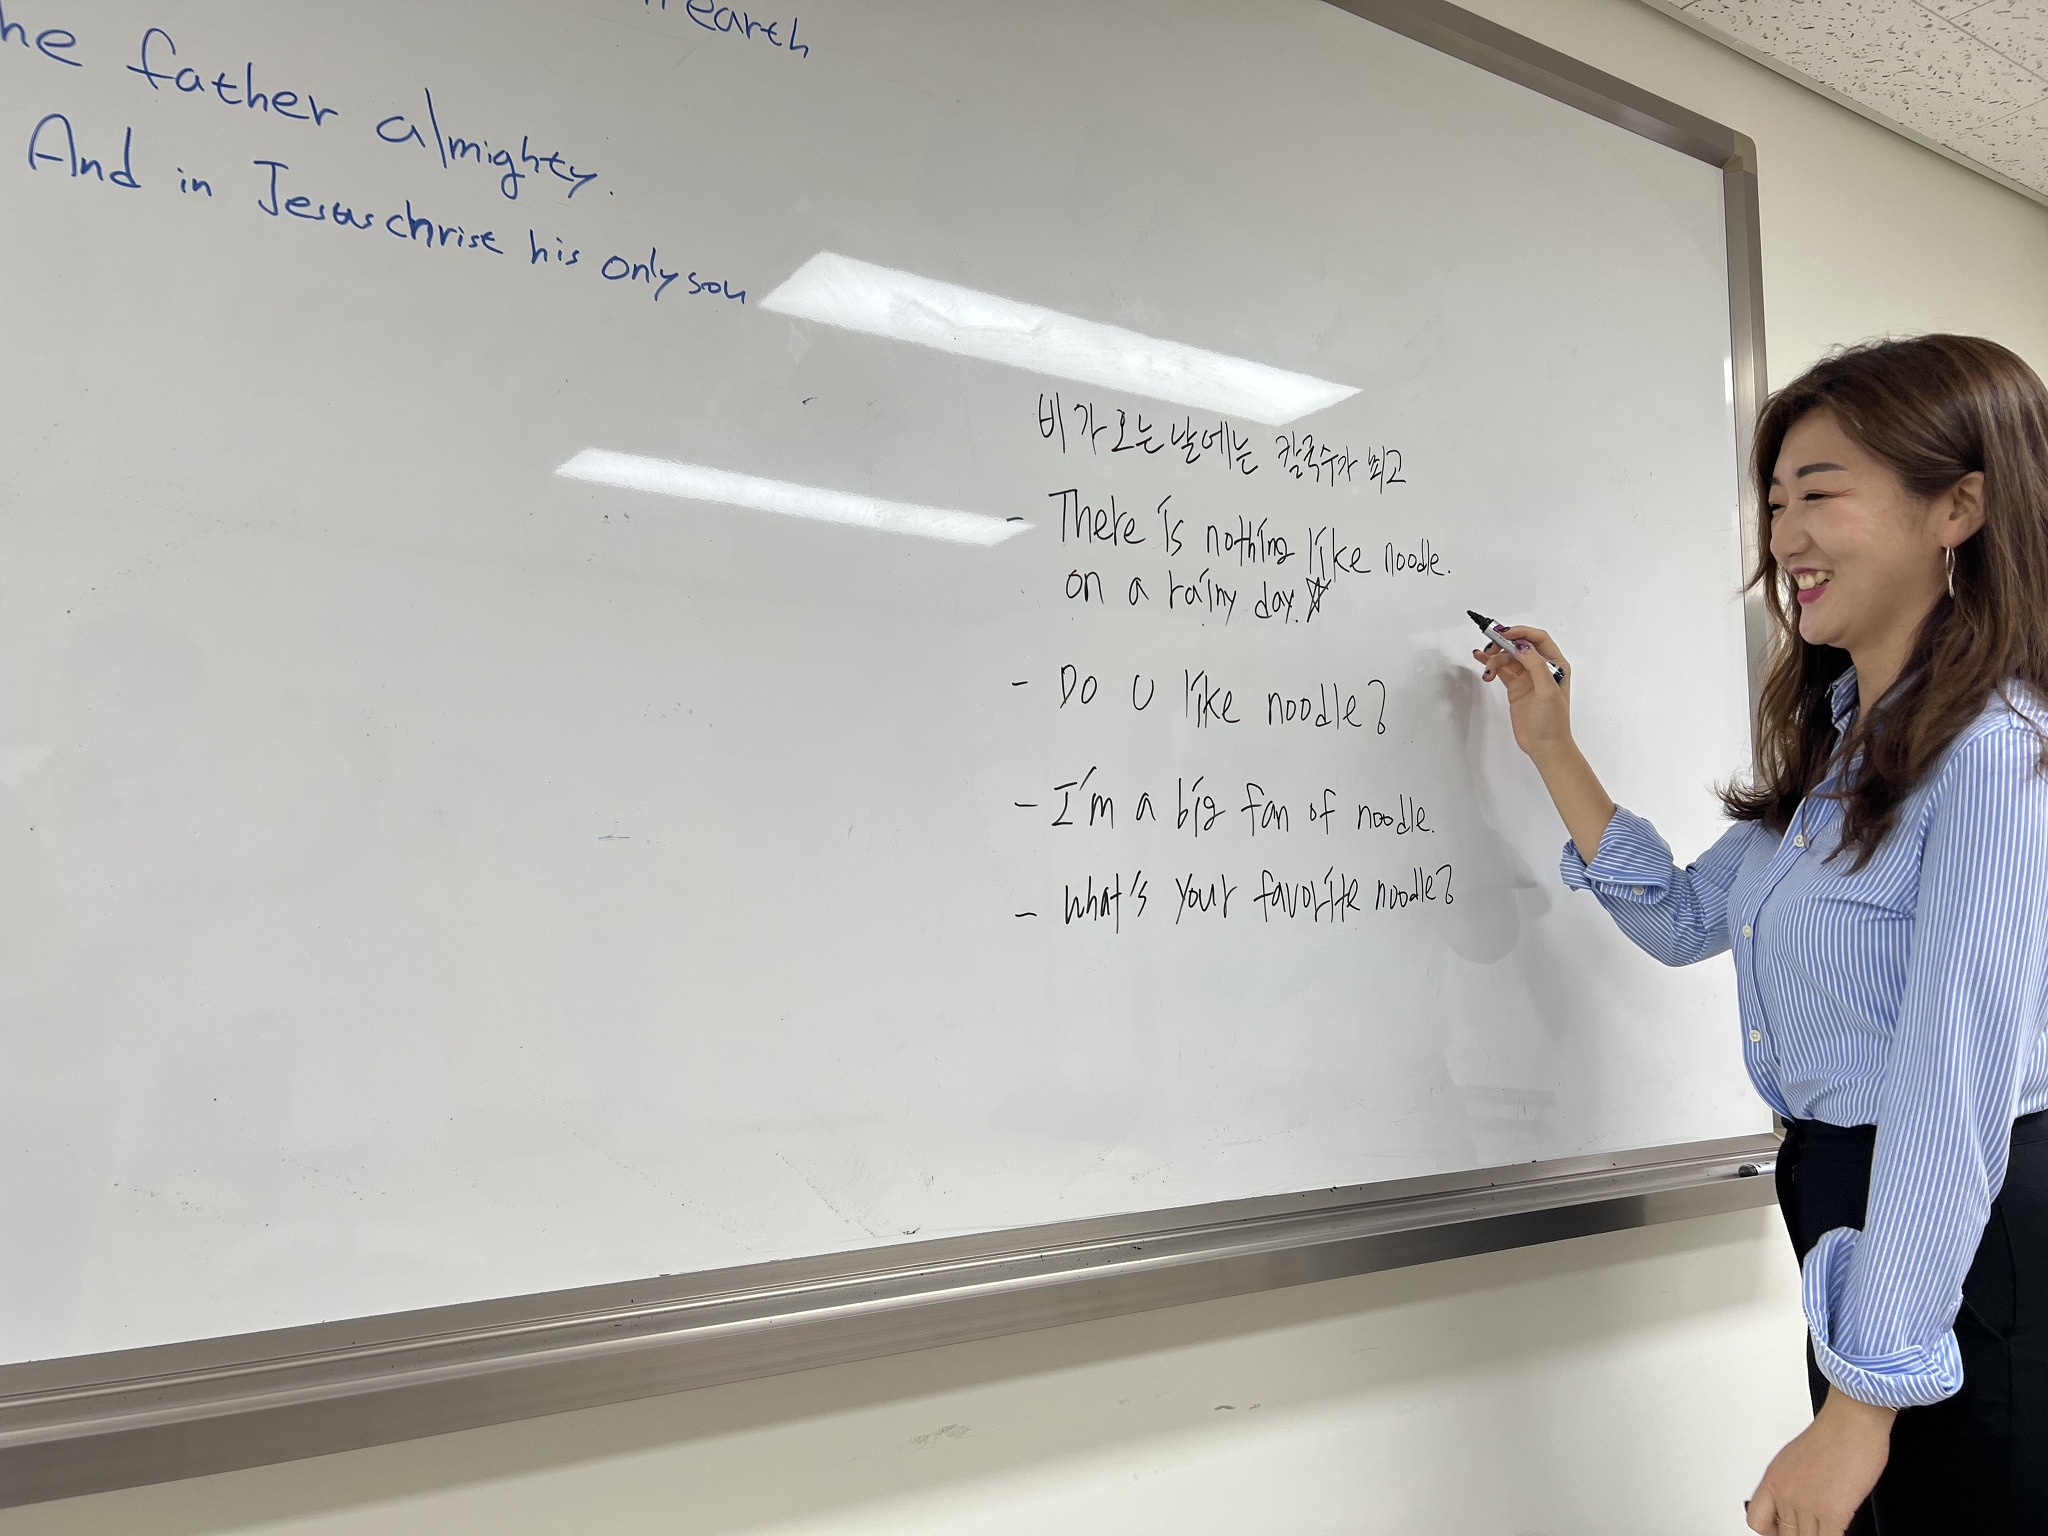 earth
he father almighty.
And in Jesus christ his only son
비가 오는 날에는 칼국수가 최고
- There is nothing like noodle.
on a rainy day.☆
- Do U like noodle?
- I'm a big fan of noodle.
- What's your favorite noodle?